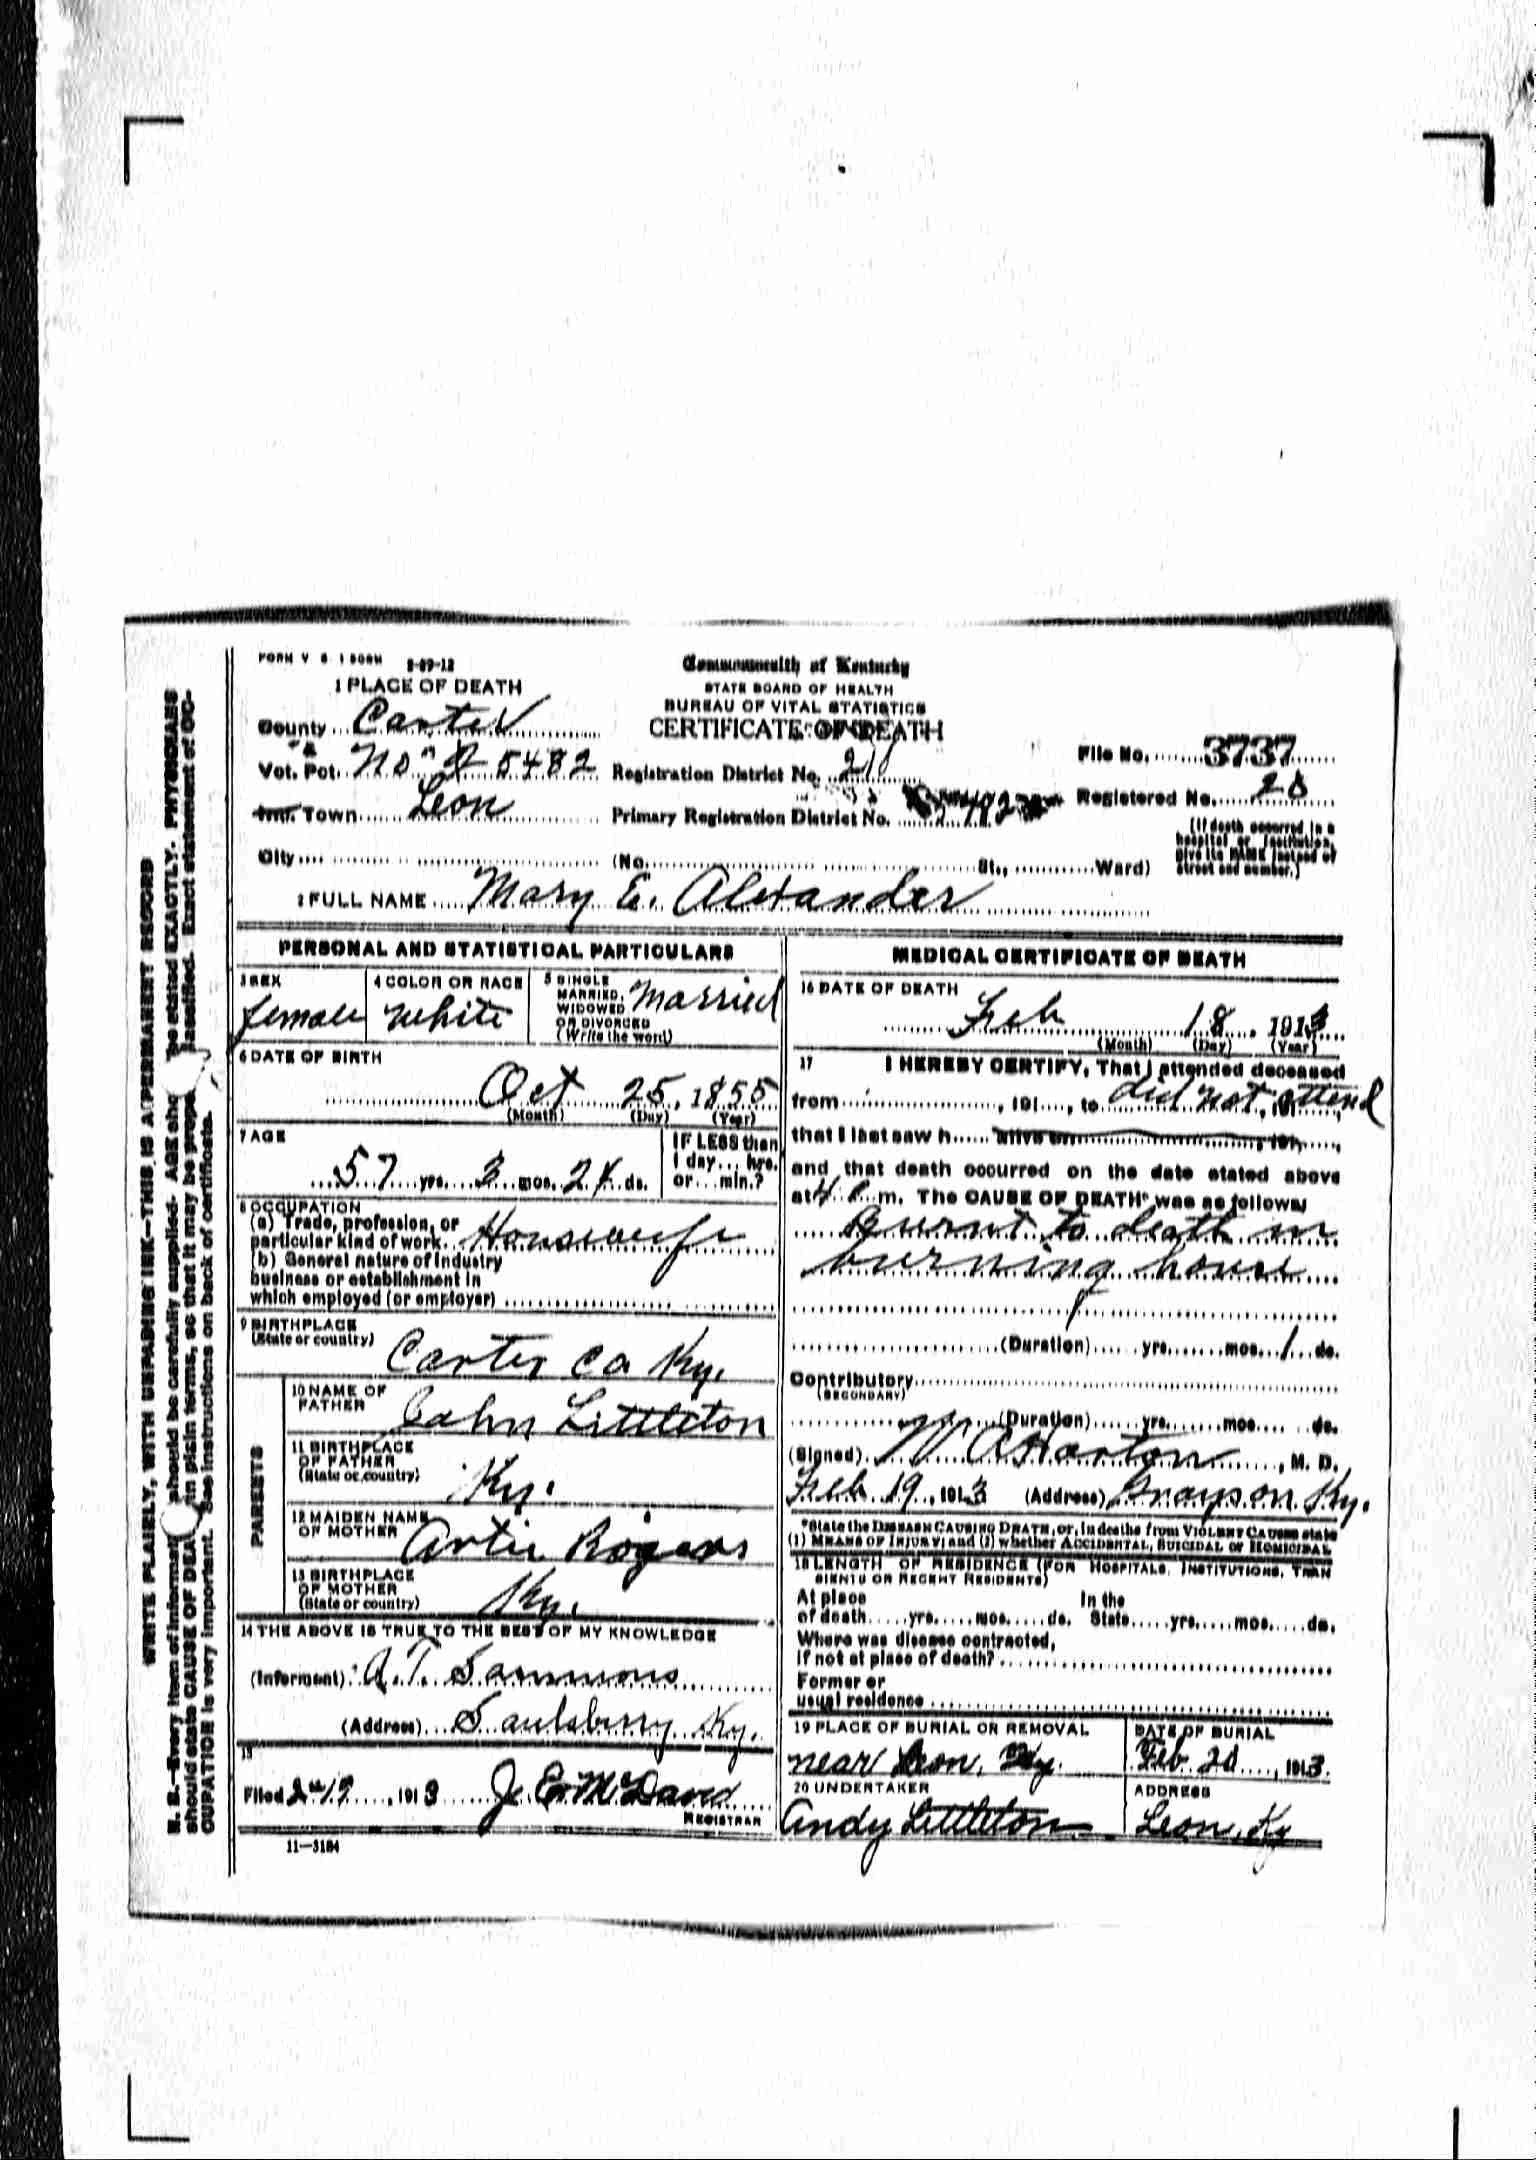 FORM V S 1 50M 8-29-12
Commonwealth of Kentucky
STATE BOARD OF HEALTH
BUREAU OF VITAL STATISTICS
CERTIFICATE OF DEATH
1 PLACE OF DEATH
County Carter
Vot. Pct. No 5482 Registration District No. File No. 3737
Inc. Town Leon Primary Registration District No. Registered No. 28
City (No. St., Ward)
(If death occurred in a hospital or institution, give its NAME instead of street and number.)
2 FULL NAME Mary E. Alexander
PERSONAL AND STATISTICAL PARTICULARS
3 SEX female
4 COLOR OR RACE White
5 SINGLE MARRIED, WIDOWED OR DIVORCED (Write the word) Married
6 DATE OF BIRTH
Oct 25, 1855
(Month) (Day) (Year)
7 AGE
57 yrs. 3 mos. 24 ds.
IF LESS than 1 day... hrs. or... min.?
8 OCCUPATION
(a) Trade, profession, or
particular kind of work Housewife
(b) General nature of industry
business or establishment in
which employed (or employer)
9 BIRTHPLACE
(State or country) Carter Co Ky.
PARENTS
10 NAME OF FATHER John Littleton
11 BIRTHPLACE OF FATHER (State or country) Ky.
12 MAIDEN NAME OF MOTHER Artie Rogers
13 BIRTHPLACE OF MOTHER (State or country) Ky.
14 THE ABOVE IS TRUE TO THE BEST OF MY KNOWLEDGE
(Informant) A.T. Sammons
(Address) Saulsberry Ky.
15
Filed 2-19, 1913 J. E. McDavid
REGISTRAR
11—3184
MEDICAL CERTIFICATE OF DEATH
16 DATE OF DEATH
Feb 18, 1913
(Month) (Day) (Year)
17 I HEREBY CERTIFY, That I attended deceased
from , 191 , to did not attend
that I last saw h alive on , 191 ,
and that death occurred on the date stated above
at 4 m. The CAUSE OF DEATH* was as follows:
Burnt to death in
burning house
(Duration) yrs. mos. 1 ds.
Contributory
(SECONDARY)
(Duration) yrs. mos. ds.
(Signed) W A Horton, M. D.
Feb 19, 1913 (Address) Grayson Ky.
*State the DISEASE CAUSING DEATH, or, in deaths from VIOLENT CAUSES state
(1) MEANS OF INJURY; and (2) whether ACCIDENTAL, SUICIDAL OR HOMICIDAL
18 LENGTH OF RESIDENCE (FOR HOSPITALS, INSTITUTIONS, TRANSIENTS OR RECENT RESIDENTS)
At place In the
of death yrs. mos. ds. State yrs. mos. ds.
Where was disease contracted,
if not at place of death?
Former or
usual residence
19 PLACE OF BURIAL OR REMOVAL
near Leon, Ky.
DATE OF BURIAL
Feb 20, 1913.
20 UNDERTAKER
Andy Littleton
ADDRESS
Leon, Ky
WRITE PLAINLY, WITH UNFADING INK—THIS IS A PERMANENT RECORD
N. B.—Every item of information should be carefully supplied. AGE should be stated EXACTLY. PHYSICIANS
should state CAUSE OF DEATH in plain terms, so that it may be properly classified. Exact statement of OC-
CUPATION is very important. See instructions on back of certificate.